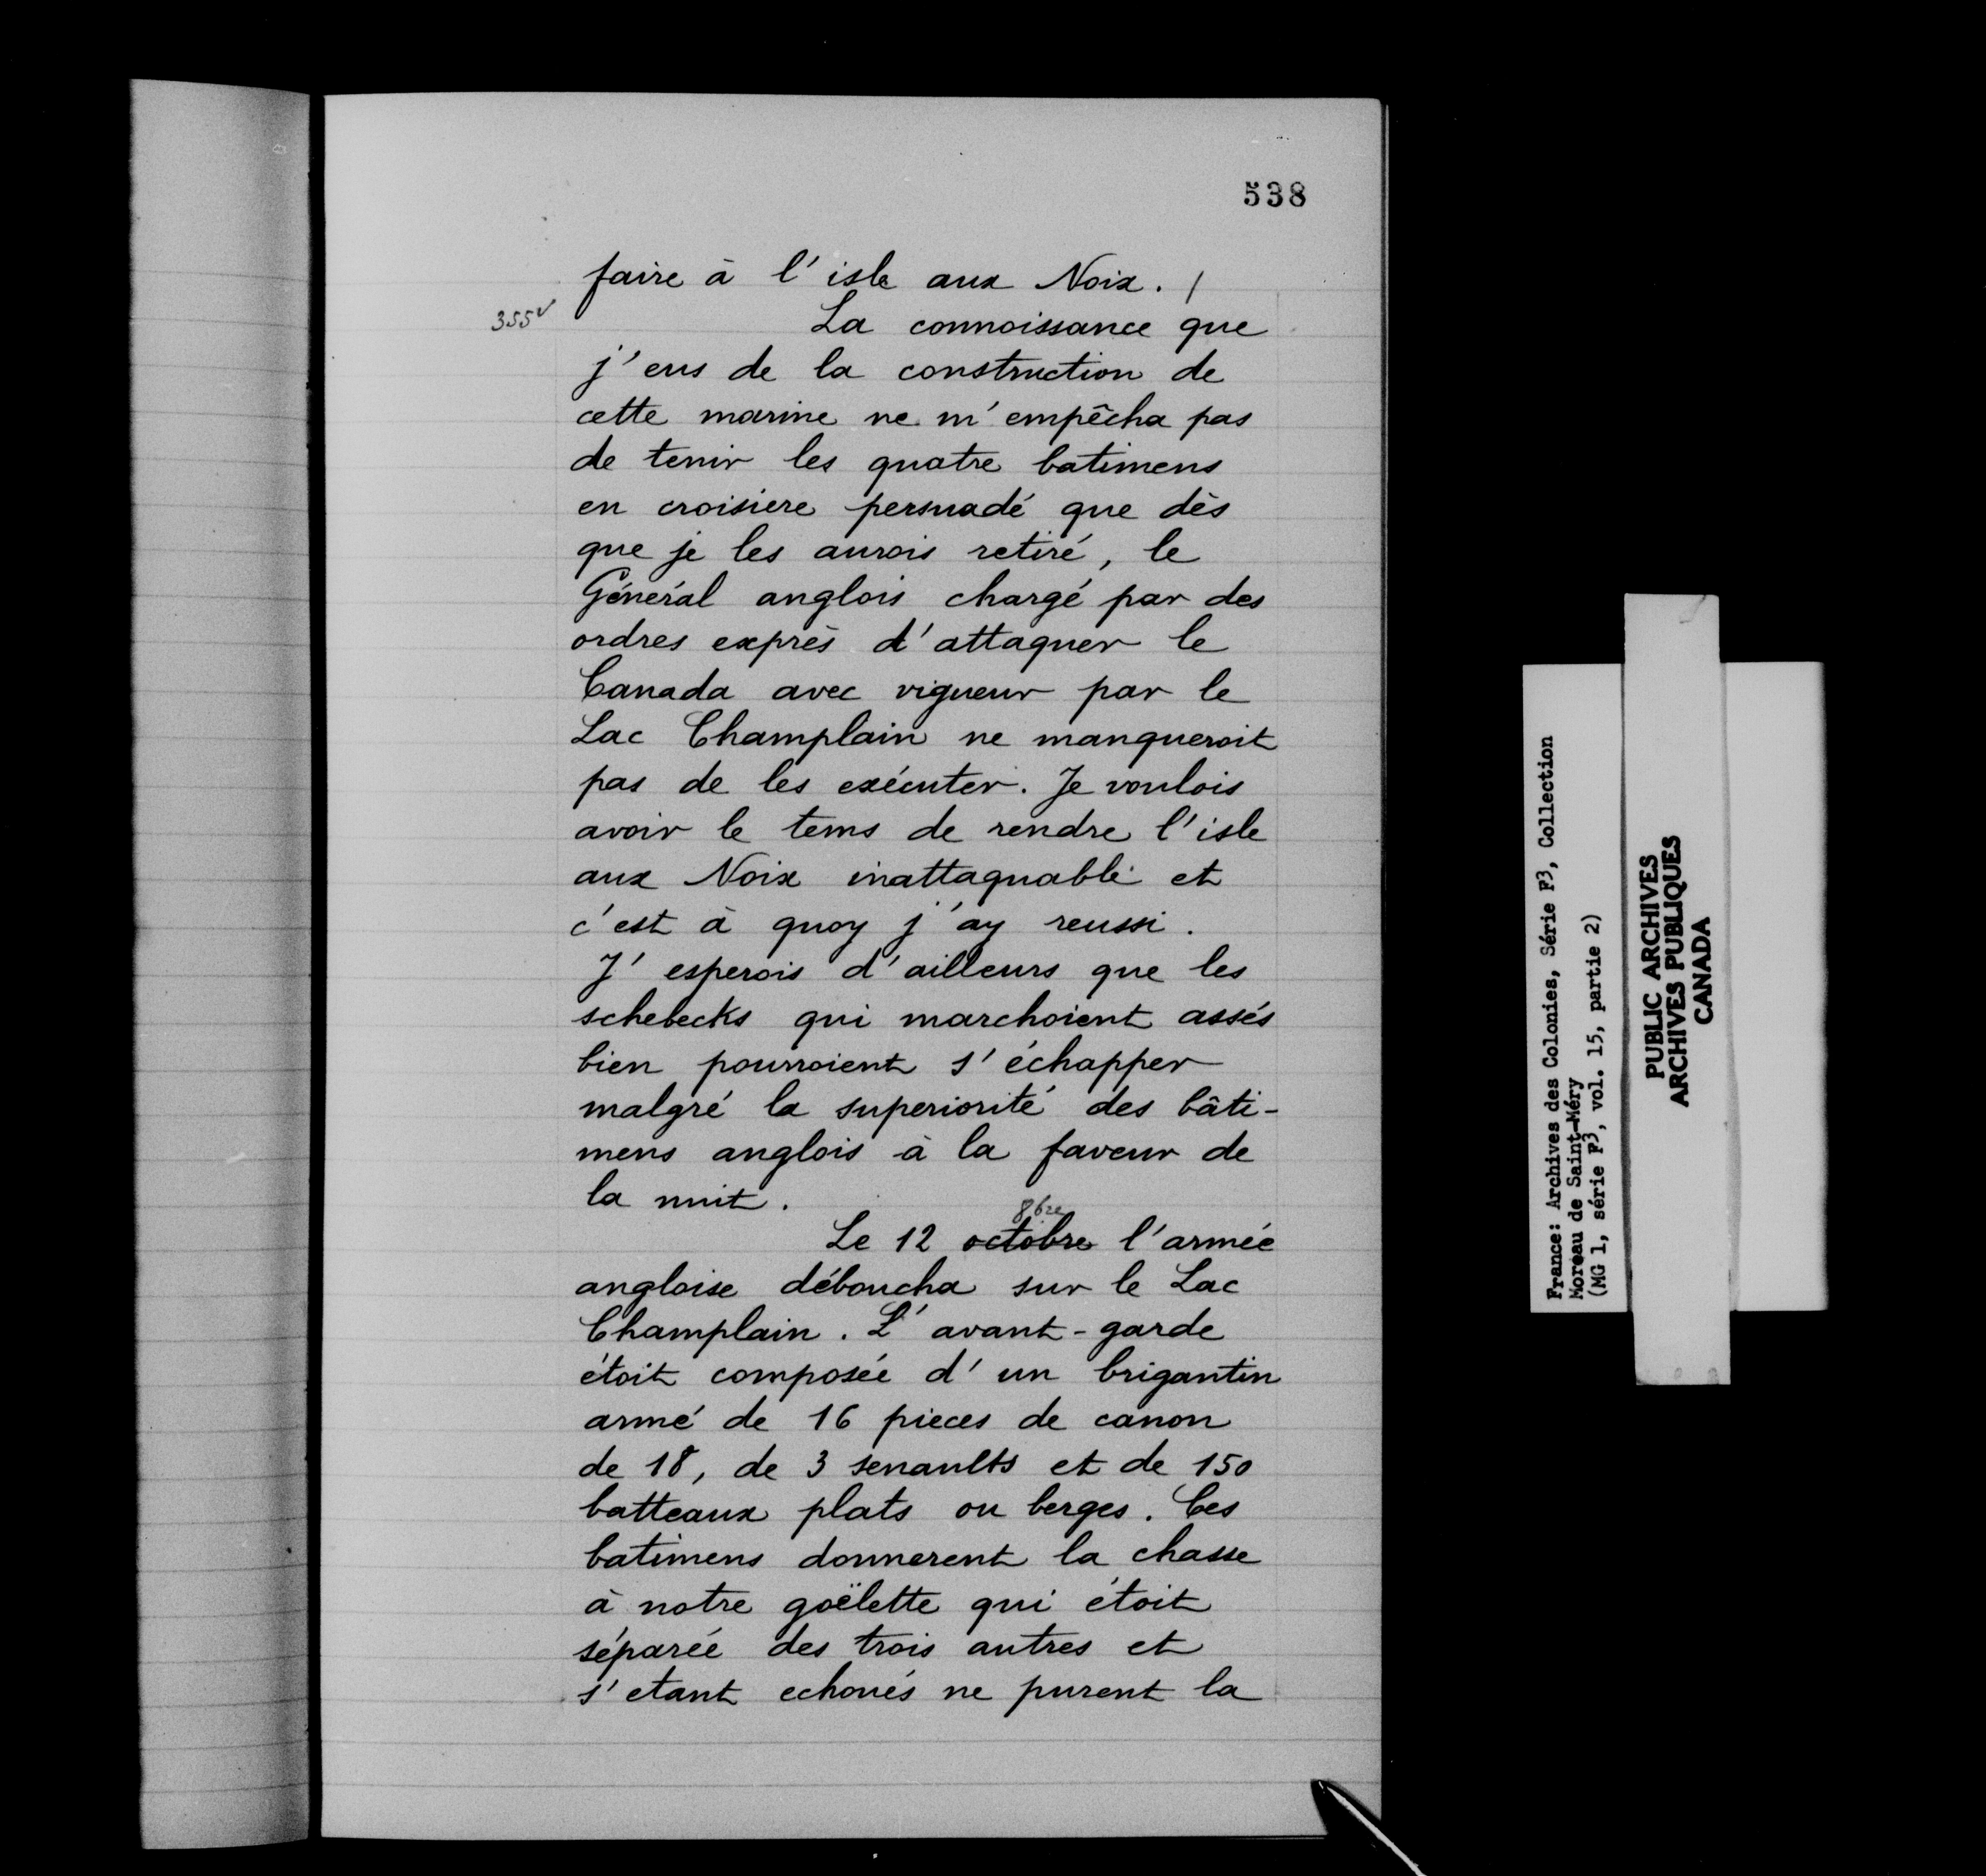 538
faire à l'isle aux Noix. /
355v
La connoissance que
j'eus de la construction de
cette marine ne m'empêcha pas
de tenir les quatre batimens
en croisiere persuadé que dès
que je les aurois retiré, le
Général anglois chargé par des
ordres exprès d'attaquer le
Canada avec vigueur par le
Lac Champlain ne manqueroit
pas de les exécuter. Je voulois
avoir le tems de rendre l'isle
aux Noix inattaquable et
c'est à quoy j'ay reussi.
J'esperois d'ailleurs que les
schebecks qui marchoient assés
bien pourroient s'échapper
malgré la superiorité des bâti-
mens anglois à la faveur de
la nuit.
8bre
Le 12 octobre l'armée
angloise déboucha sur le Lac
Champlain. L'avant-garde
étoit composée d'un brigantin
armé de 16 pieces de canon
de 18, de 3 senaults et de 150
batteaux plats ou berges. Ces
batimens donnerent la chasse
à notre goëlette qui étoit
séparée des trois autres et
s'etant echoués ne purent la
France: Archives des Colonies, Série F3, Collection
Moreau de Saint-Méry
(MG 1, série F3, vol. 15, partie 2)
PUBLIC ARCHIVES
ARCHIVES PUBLIQUES
CANADA